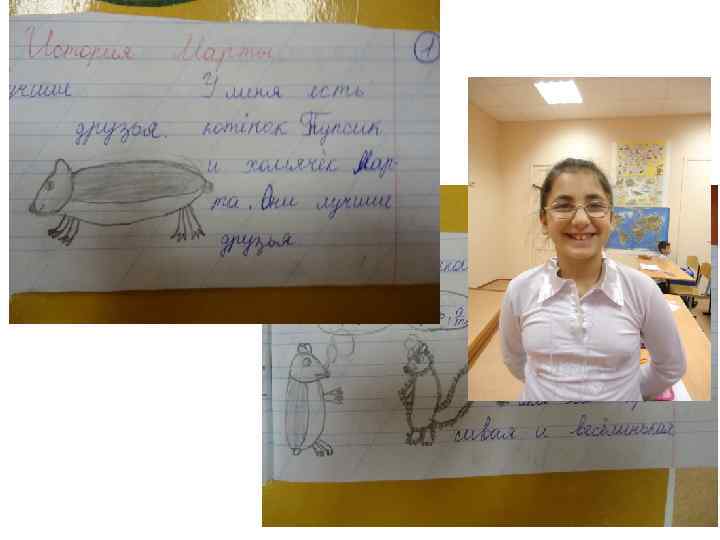 История Марты 1
учшие
друзья.
У меня есть
котёнок Пупсик
и хомячёк Мар-
та. Они лучшие
друзья
сивая и весёлинькая